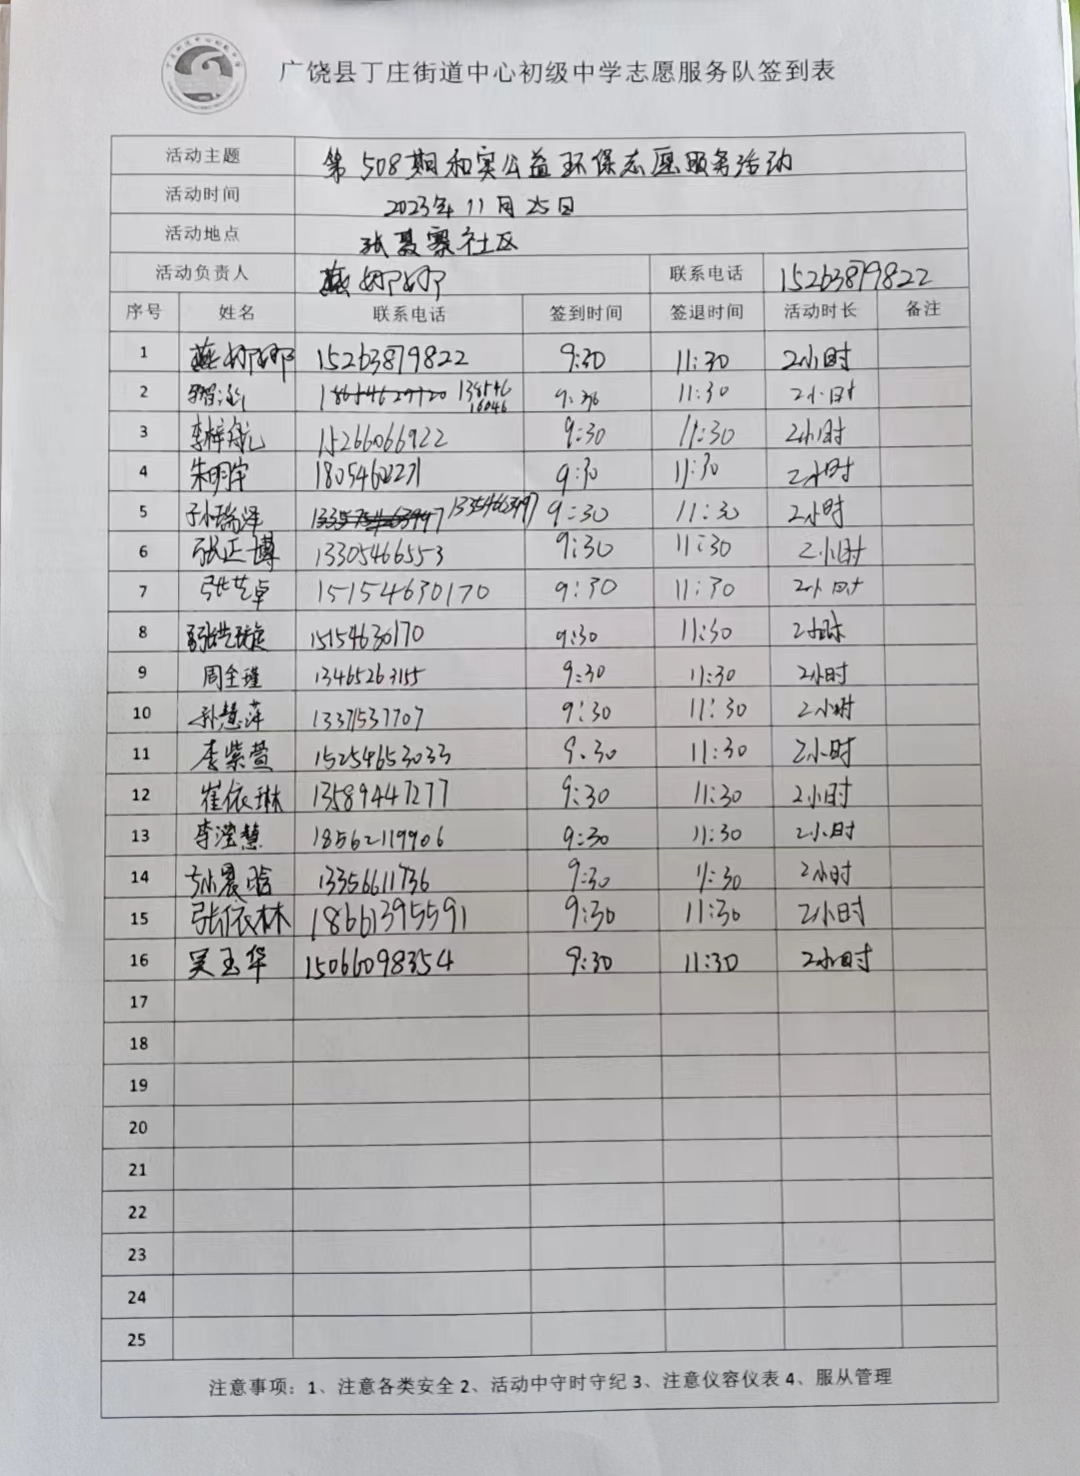 广饶县丁庄街道中心初级中学志愿服务队签到表
活动主题 第508期和实公益环保志愿服务活动
活动时间 2023年11月25日
活动地点 张聂寨社区
活动负责人 燕娜娜 联系电话 15263879822
序号 姓名 联系电话 签到时间 签退时间 活动时长 备注
1 燕娜娜 15263879822 9:30 11:30 2小时
2 13854616046 9:30 11:30 2小时
3 李梓航 15266066922 9:30 11:30 2小时
4 朱明宇 9:30 11:30 2小时
5 孙瑞泽 9:30 11:30 2小时
6 张正博 13305466553 9:30 11:30 2小时
7 张艺卓 151154630170 9:30 11:30 2小时
8 15154630170 9:30 11:30 2小时
9 周全瑾 13465263155 9:30 11:30 2小时
10 孙慧萍 13371537707 9:30 11:30 2小时
11 李紫萱 15254653033 9.30 11:30 2小时
12 崔依琳 13589447277 9:30 11:30 2小时
13 李滢慧 18562119906 9:30 11:30 2小时
14 孙晨晗 13356611736 9:30 11:30 2小时
15 张依林 18661395591 9:30 11:30 2小时
16 吴玉华 15066098354 9:30 11:30 2小时
17
18
19
20
21
22
23
24
25
注意事项：1、注意各类安全 2、活动中守时守纪 3、注意仪容仪表 4、服从管理